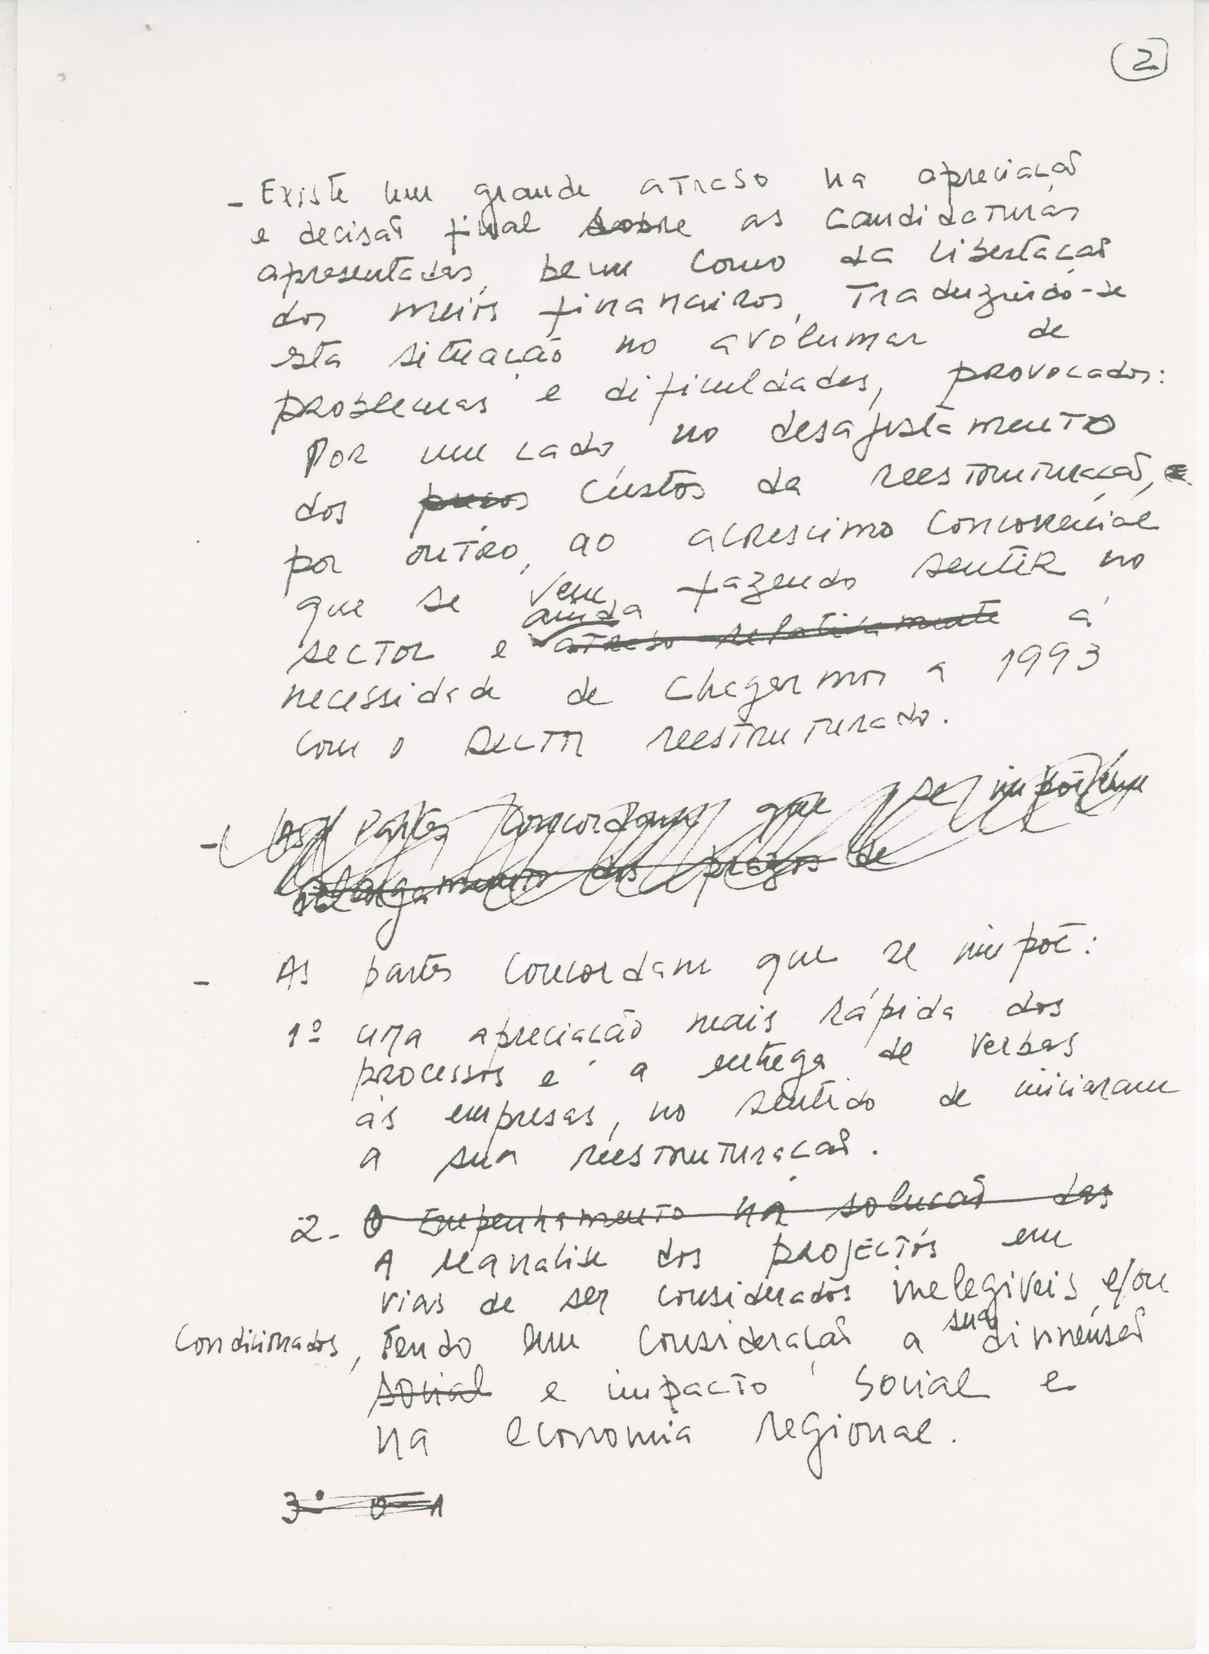 2
- Existe um grande atraso na apreciação
e decisão final sobre as candidaturas
apresentadas, bem como da libertação
dos meios financeiros, traduzindo-se
esta situação no avolumar de
problemas e dificuldades, provocados:
Por um lado, no desajustamento
dos custos da reestruturação,
por outro, ao acrescimo concorrencial
que se vem fazendo sentir no
ainda
sector e atraso relativamente á
necessidade de chegarmos a 1993
com o sector reestruturado.
- As partes concordam que se impõe um
alargamento dos prazos de
- As partes concordam que se impõe:
1º uma apreciação mais rápida dos
processos e a entrega de verbas
às empresas, no sentido de iniciaram
a sua reestruturação.
2- O Empenhamento na solução das
A reanalise dos projectos em
vias de ser considerados inelegiveis e/ou
condicionados, tendo em consideração a sua dimensão
social e impacto social e
na economia regional.
3º